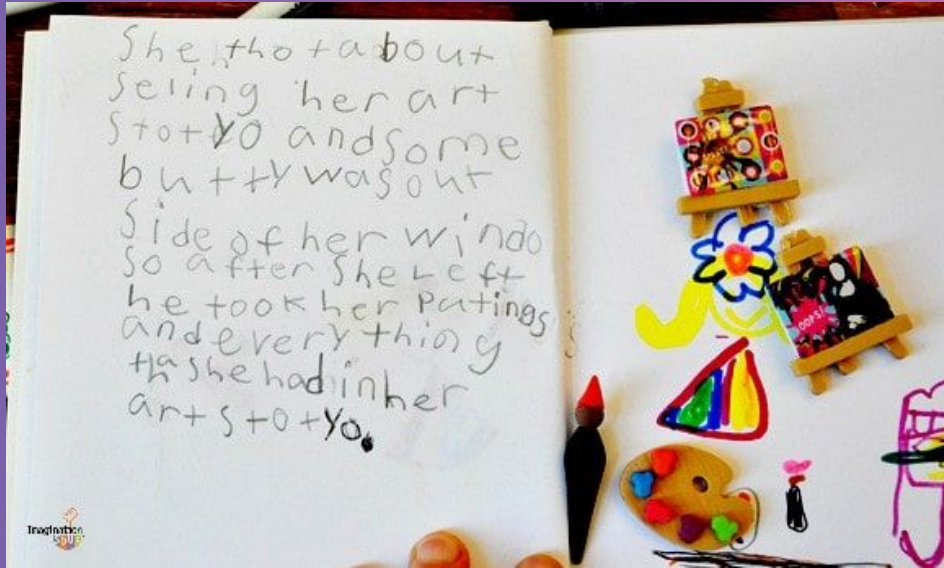 She thot about
Seling her art
Stotyo and some
buttY was out
Side of her windo
So after She Left
he took her Patings
and every thing
tha she had in her
art Stotyo.
OOPS!
Imagination
Soup